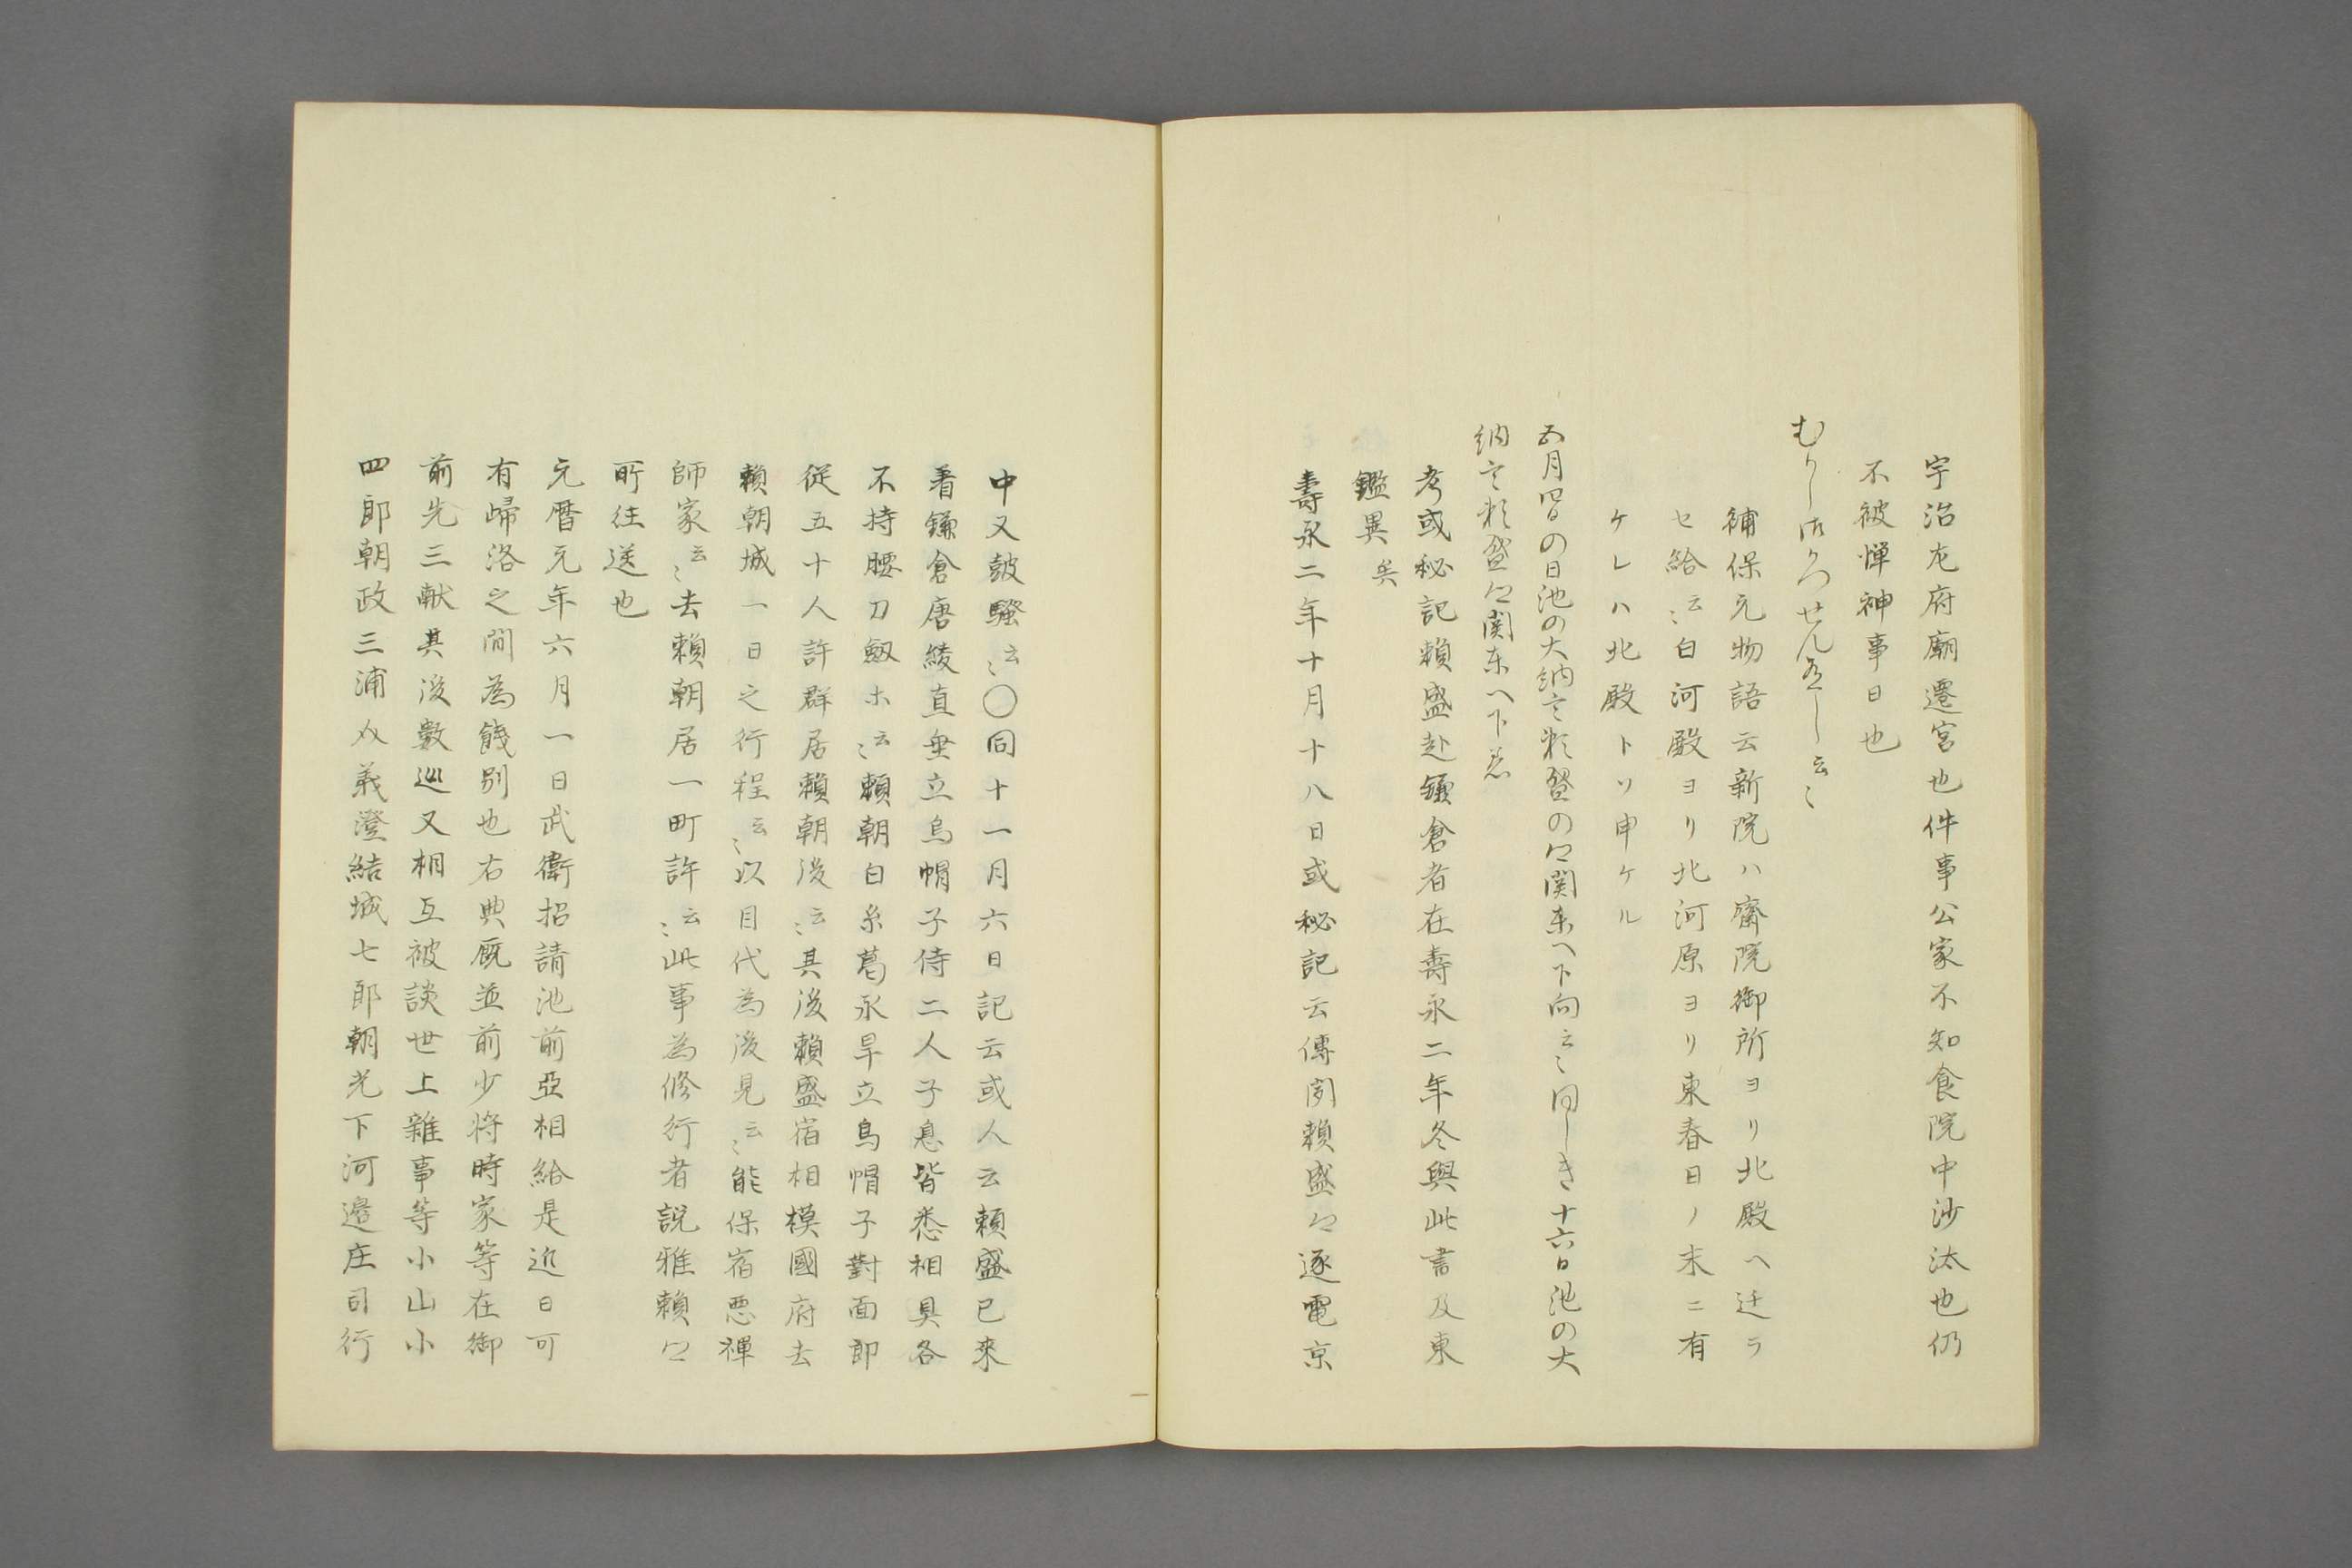 宇治左府廟遷宮也件事公家不知食院中沙汰也仍
不被憚神事日也
むかし御かつせん有し云〻
補保元物語云新院ハ齋院御所ヨリ北殿ヘ迁ラ
セ給云〻白河殿ヨリ北河原ヨリ東春日ノ末ニ有
ケレハ北殿トソ申ケル
五月四日の日池の大納言頼盛の卿関東へ下向云〻同しき十六日池の大
納言頼盛卿関東へ下着
考或秘記頼盛赴鎌倉者在壽永二年冬與此書及東
鑑異矣
壽永二年十月十八日或秘記云傳聞頼盛卿逐電京
中又鼓騒云〻〇同十一月六日記云或人云頼盛已來
着鎌倉唐綾直垂立烏帽子侍二人子息皆悉相具各
不持腰刀剱ホ云〻頼朝白糸葛水旱立烏帽子對面郎
從五十人許群居頼朝後云〻其後頼盛宿相模國府去
頼朝城一日之行程云〻以目代為後見云〻能保宿悪禅
師家云〻去頼朝居一町許云〻此事為修行者説雅頼卿
所往送也
元暦元年六月一日武衛招請池前亞相給是近日可
有歸洛之間為餞別也右典厩並前少将時家等在御
前先三献其後數巡又相互被談世上雜事等小山小
四郎朝政三浦介義澄結城七郎朝光下河邉庄司行